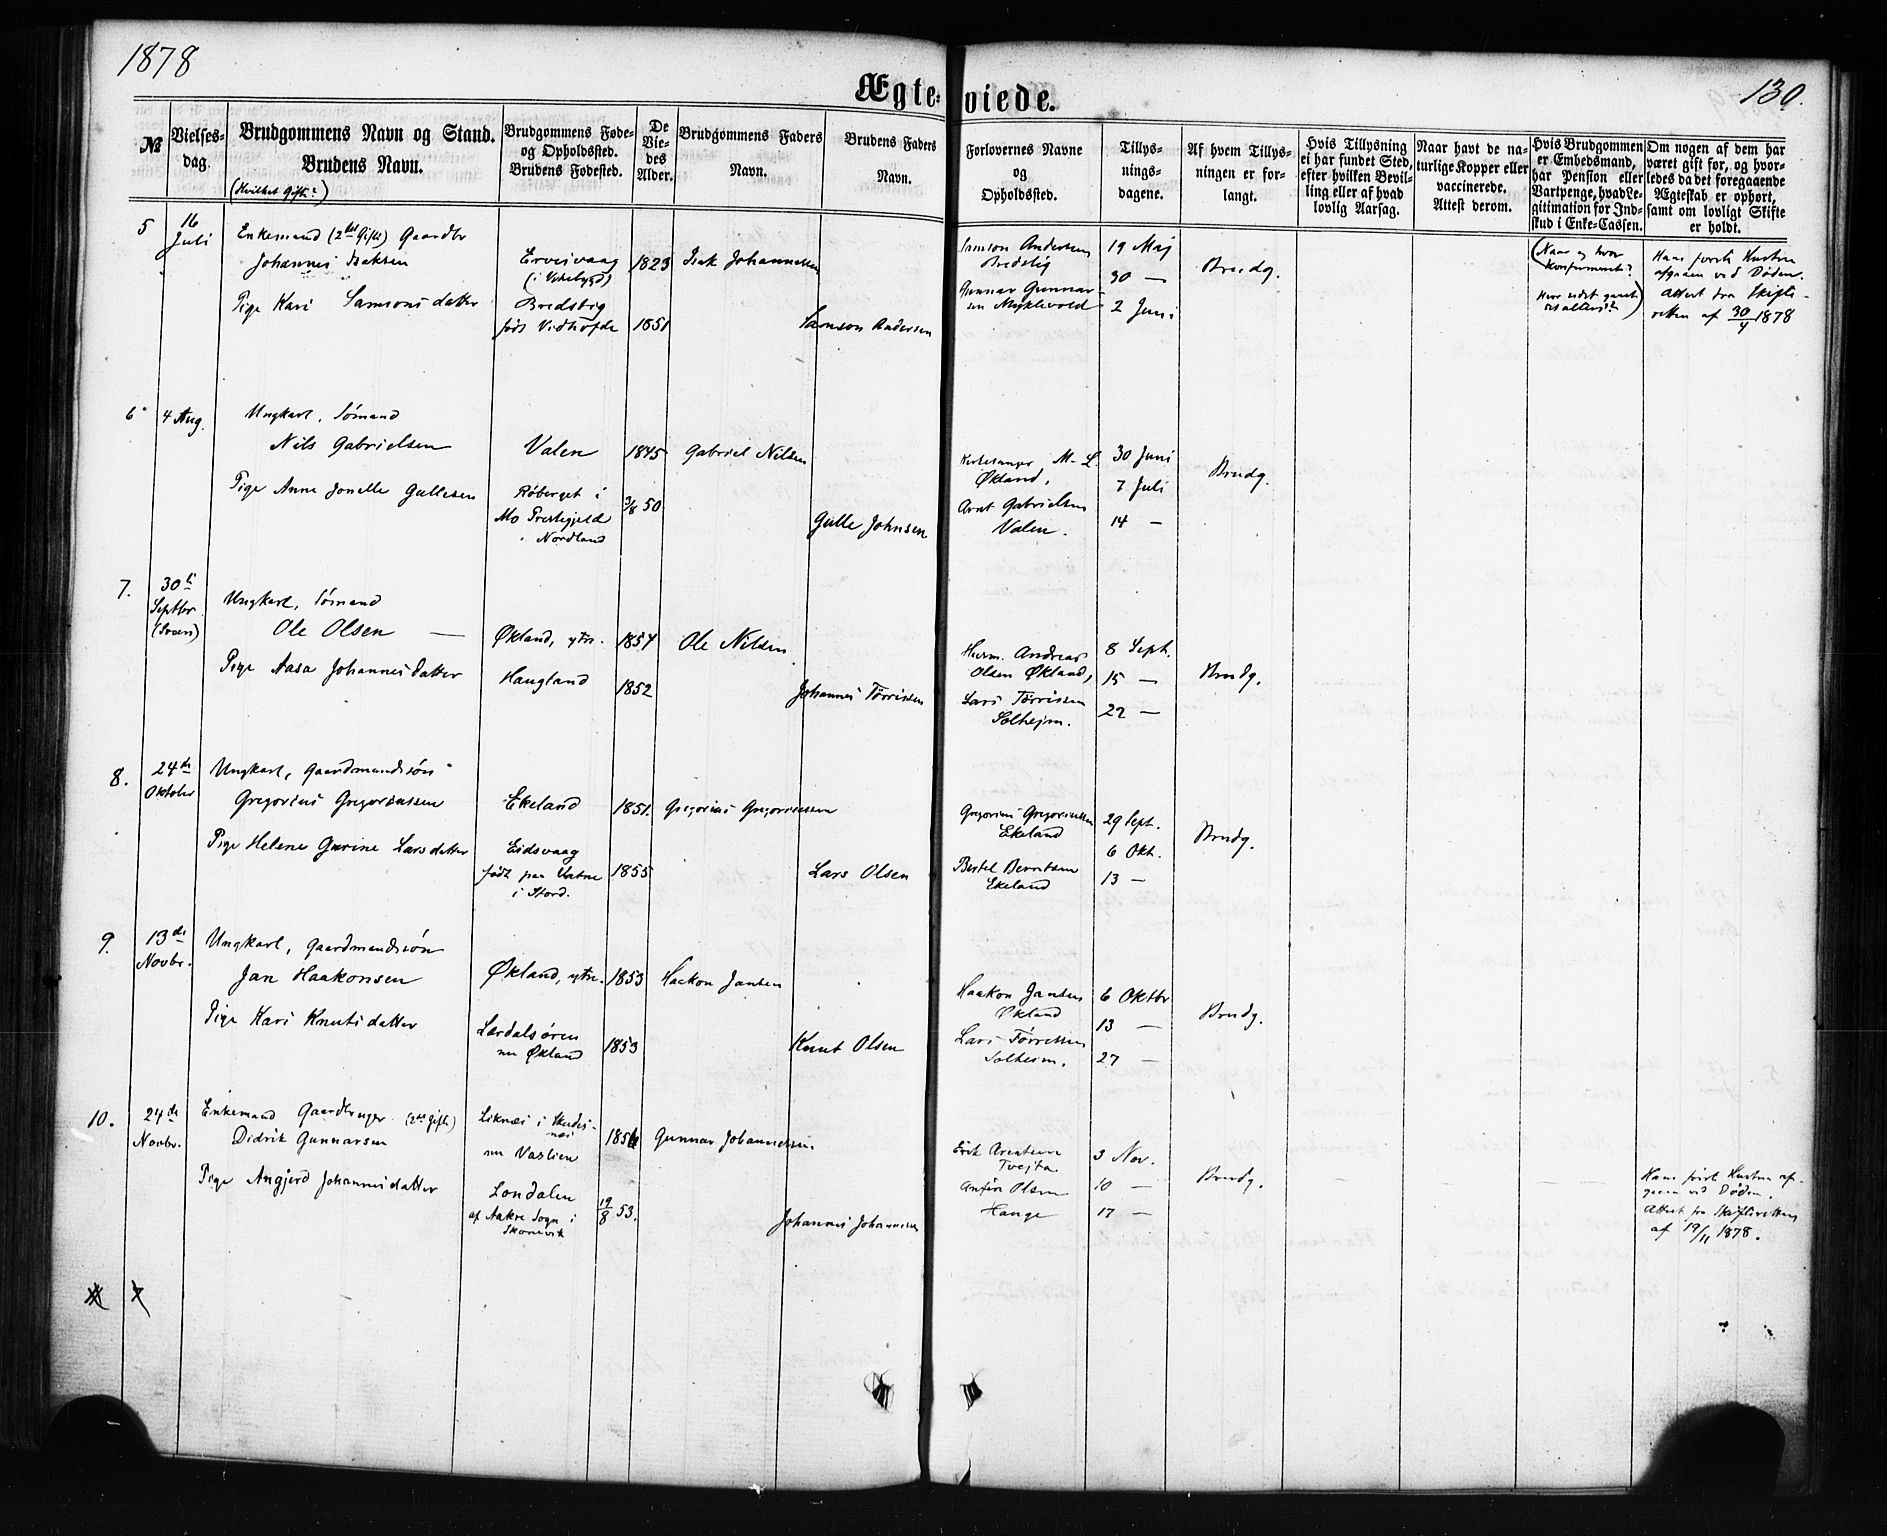 1878
130.
Ægte-viede.
№
Vielses-dag.
Brudgommens Navn og Stand.
Brudens Navn.
(Hvilket Gifte?)
Brudgommens Føde- og Opholdssted.
Brudens Fødested.
De Vie-des Alder.
Brudgommens Faders Navn.
Brudens Faders Navn.
Forlovernes Navne og Opholdssted.
Tillys-nings-dagene.
Af hvem Tillys-ningen er for-langt.
Hvis Tillysning ei har fundet Sted, efter hvilken Bevil-ling eller af hvad lovlig Aarsag.
Naar havt de na-turlige Kopper eller vaccinerede. Attest derom.
Hvis Brudgommen er Embedsmand, har Pension eller Vartpenge, hvad Le-gitimation for Ind-skud i Enke-Cassen.
Om nogen af dem har været gift før, og hvor-ledes da det foregaaende Ægteskab er ophørt, samt om lovligt Skifte er holdt.
5
16 Juli
Enkemand (2det Gifte) Gaardbr
Johannes Isaksen
Pige Kari Samsonsdatter
Ervesvaag
(i Vikebygd)
Bredsbig
født Vidhøfde
1823
1851
Isak Johannessen
Samson Andersen
Samson Andersen
Gunnar Gunnar-
sen Myklevold
19 Maj
30 —
2 Juni
Brudg.
(Naar og hvor
Konfirmeret?
Hans første Hustru
afgaaen ved Døden.
Attest fra Skifte-
retten af 30/4 1878
6
4 Aug.
Ungkarl, Sømand
Nils Gabrielsen
Pige Anne Jonelle Gullesen
Valen
Røberget i
Mo Prestegjeld
i Nordland
1845
3/8 50
Gabriel Nilsen
Gulle Johnsen
Kirkesanger M. L.
Økland,
Arnt Gabrielsen
Valen.
30 Juni
7 Juli
14 —
Brudg.
7.
30te
Septbr.
Ungkarl, Sømand
Ole Olsen —
Pige Aasa Johannesdatter
Økland, ytre.
Haugland
1854
1852
Ole Nilsen
Johannes Tørrissen
Herm. Andreas
Olsen Økland,
Lars Tørrissen
Solhejm.
8 Sept.
15 —
22 —
Brudg.
8.
24de
Oktober
Ungkarl, Gaardmandssøn
Gregorius Gregoriussen
Pige Helene Gurine Larsdatter
Ekeland
Eidsvaag
født paa Vatne
i Stord.
1851.
1855
Gregorius Gregoriussen
Lars Olsen
Gregorius Gregoriussen
Ekeland
Bertel Berntsen
Ekeland
29 Sept.
6 Okt.
13 —
Brudg.
9.
13de
Novbr.
Ungkarl, Gaardmandssøn
Jan Haakonsen
Pige Kari Knutsdatter
Økland, ytre.
Lærdalsøren
nu Økland
1853
1853
Haakon Jansen
Knut Olsen
Haakon Jansen
Økland
Lars Tørressen
Solheim.
6 Oktbr
13 —
27 —
Brudg.
10.
24de
Novbr.
Enkemand Gaardbruger (2det Gifte)
Didrik Gunnarsen
Pige Angjerd Johannesdatter
Liknæs i Skudes-
næs
nu Vaslien
Londalen
af Aakre Sogn i
Skonevik
19/8 53.
Gunnar Johannessen
Johannes Johannessen
Erik Arentsen
Tvejta.
Anfin Olsen
Hauge
3 Nov.
10 —
17 —
Brudg.
Hans første Hustru af-
gaaen ved Døden.
Attest fra Skifteretten
af 19/11 1878.